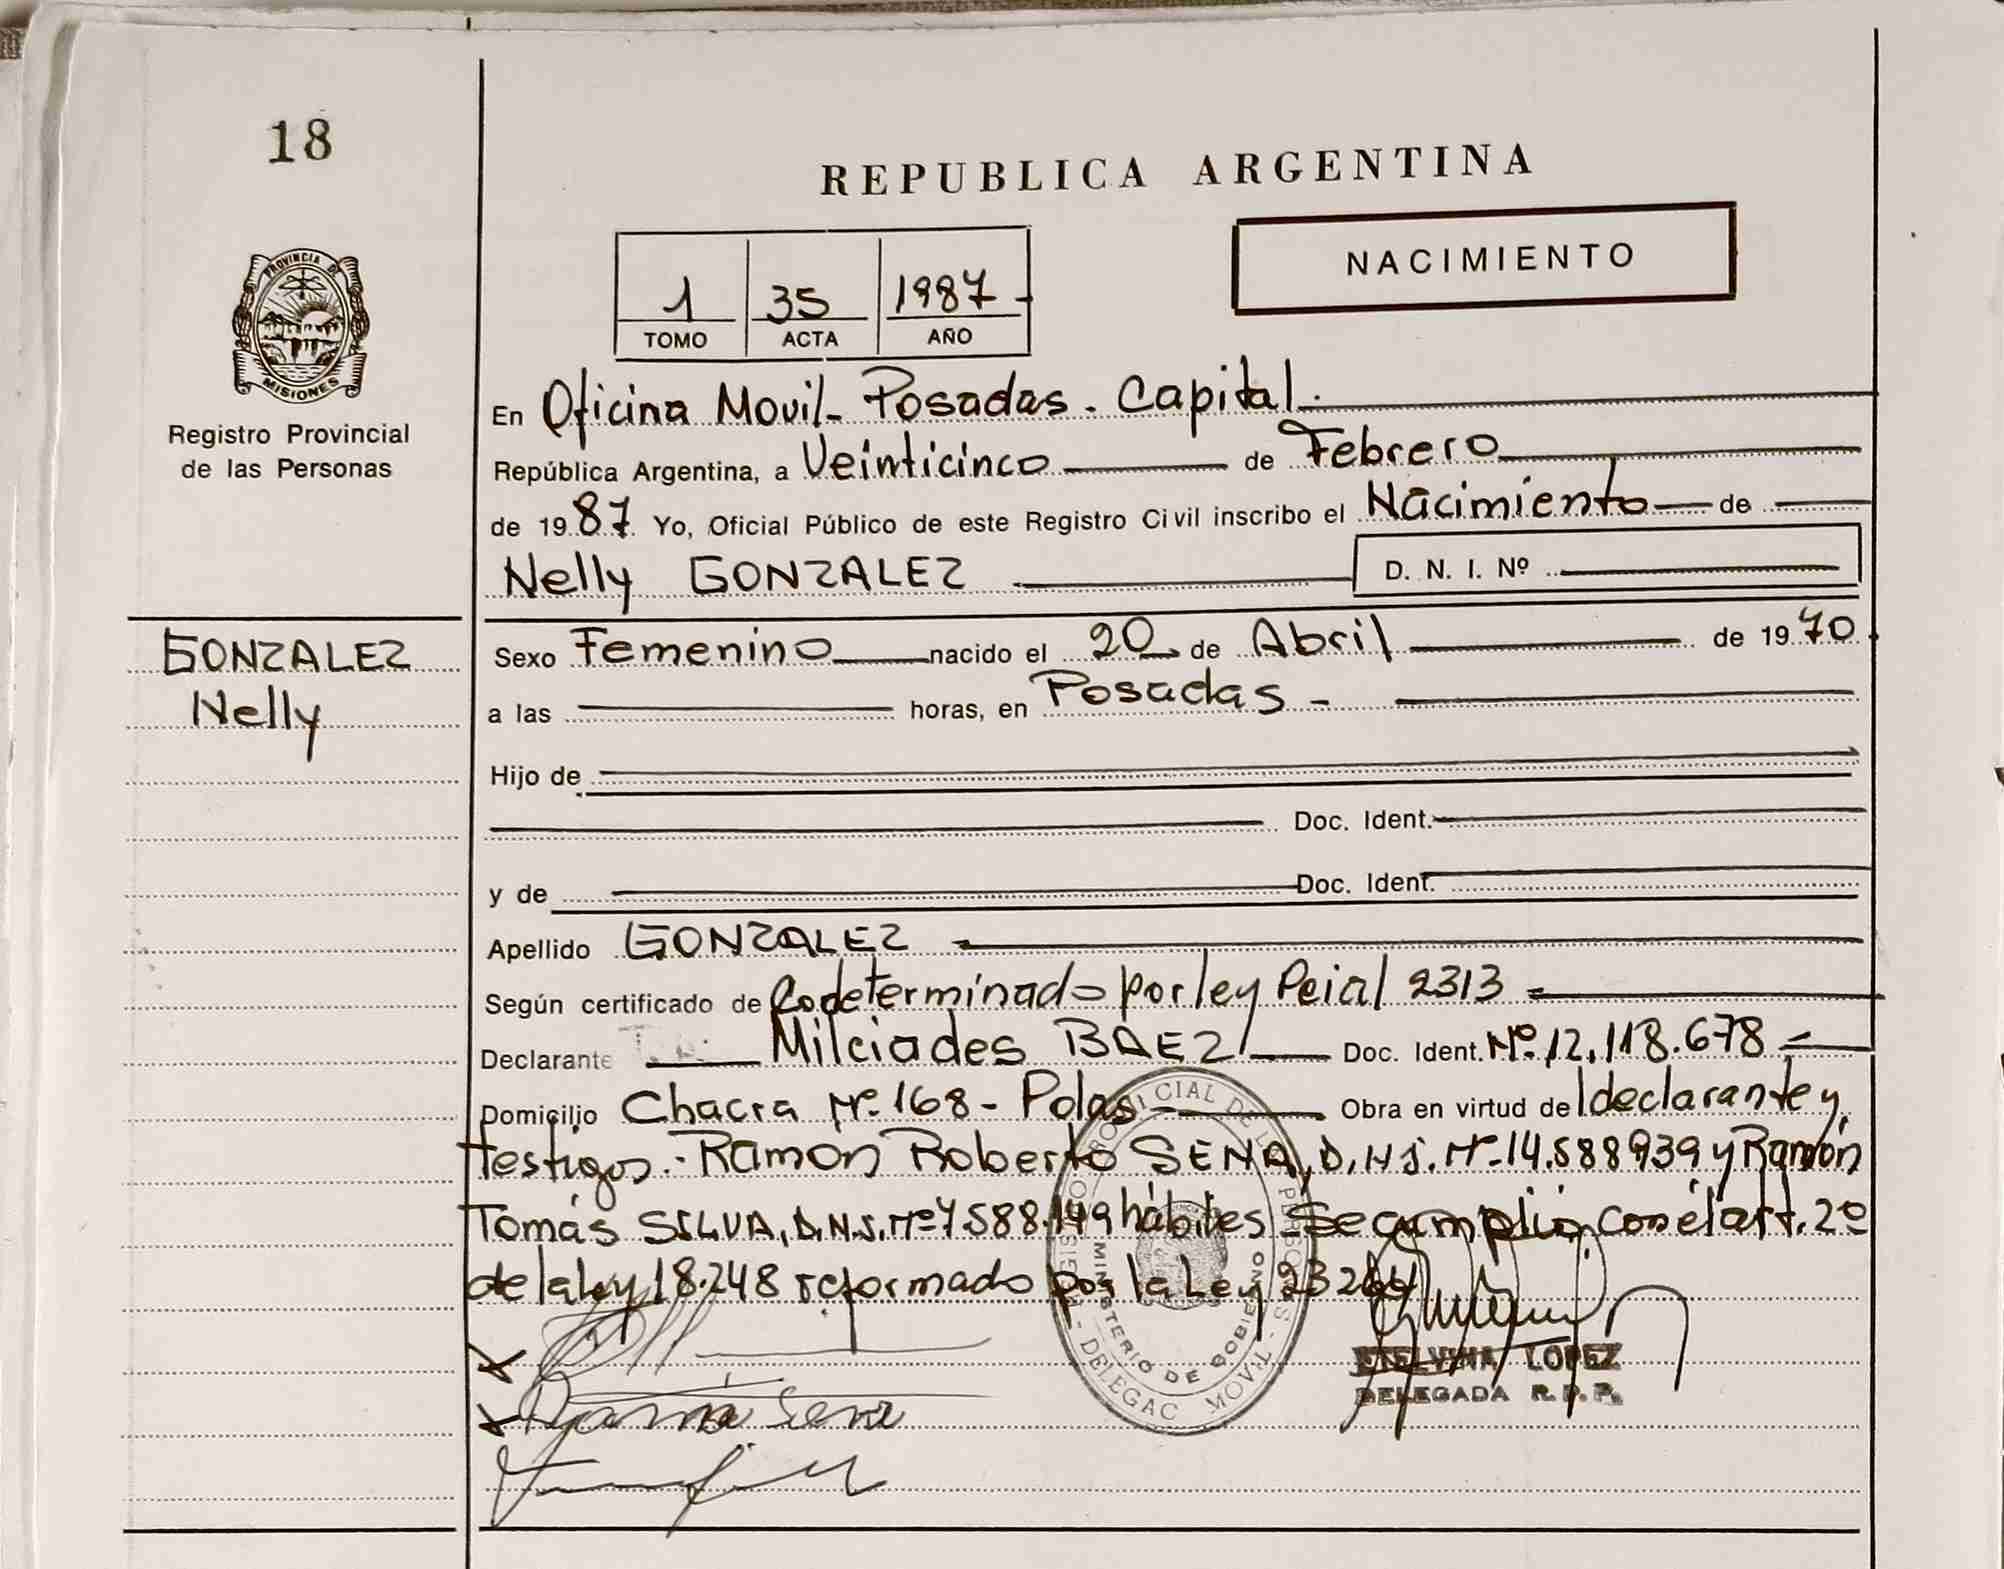 18
REPUBLICA ARGENTINA
NACIMIENTO
1 35 1987
TOMO ACTA AÑO
PROVINCIA DE
MISIONES
Registro Provincial
de las Personas
En Oficina Movil- Posadas. Capital.
República Argentina, a Veinticinco de Febrero
de 1987. Yo, Oficial Público de este Registro Civil inscribo el Nacimiento de
Nelly GONZALEZ D. N. I. Nº
GONZALEZ
Nelly
Sexo Femenino nacido el 20 de Abril de 1970
a las horas, en Posadas -
Hijo de
Doc. Ident.
y de Doc. Ident.
Apellido GONZALEZ
Según certificado de determinado por ley Pcial 2313
Declarante Milciades BAEZ Doc. Ident. Nº 12.118.678
Domicilio Chacra Nº 168 - Pdas - Obra en virtud del declarante y
testigos.- Ramón Roberto SENA, D.N.I. Nº 14.588939 y Ramón
Tomás SILVA, D.N.I. Nº 7.588.149 hábiles Se cumplió con el art. 2º
de la ley 18.248 reformado por la Ley 23264
ETELVINA LOPEZ
DELEGADA R. P. P.
MINISTERIO DE GOBIERNO
DELEGAC MOVIL